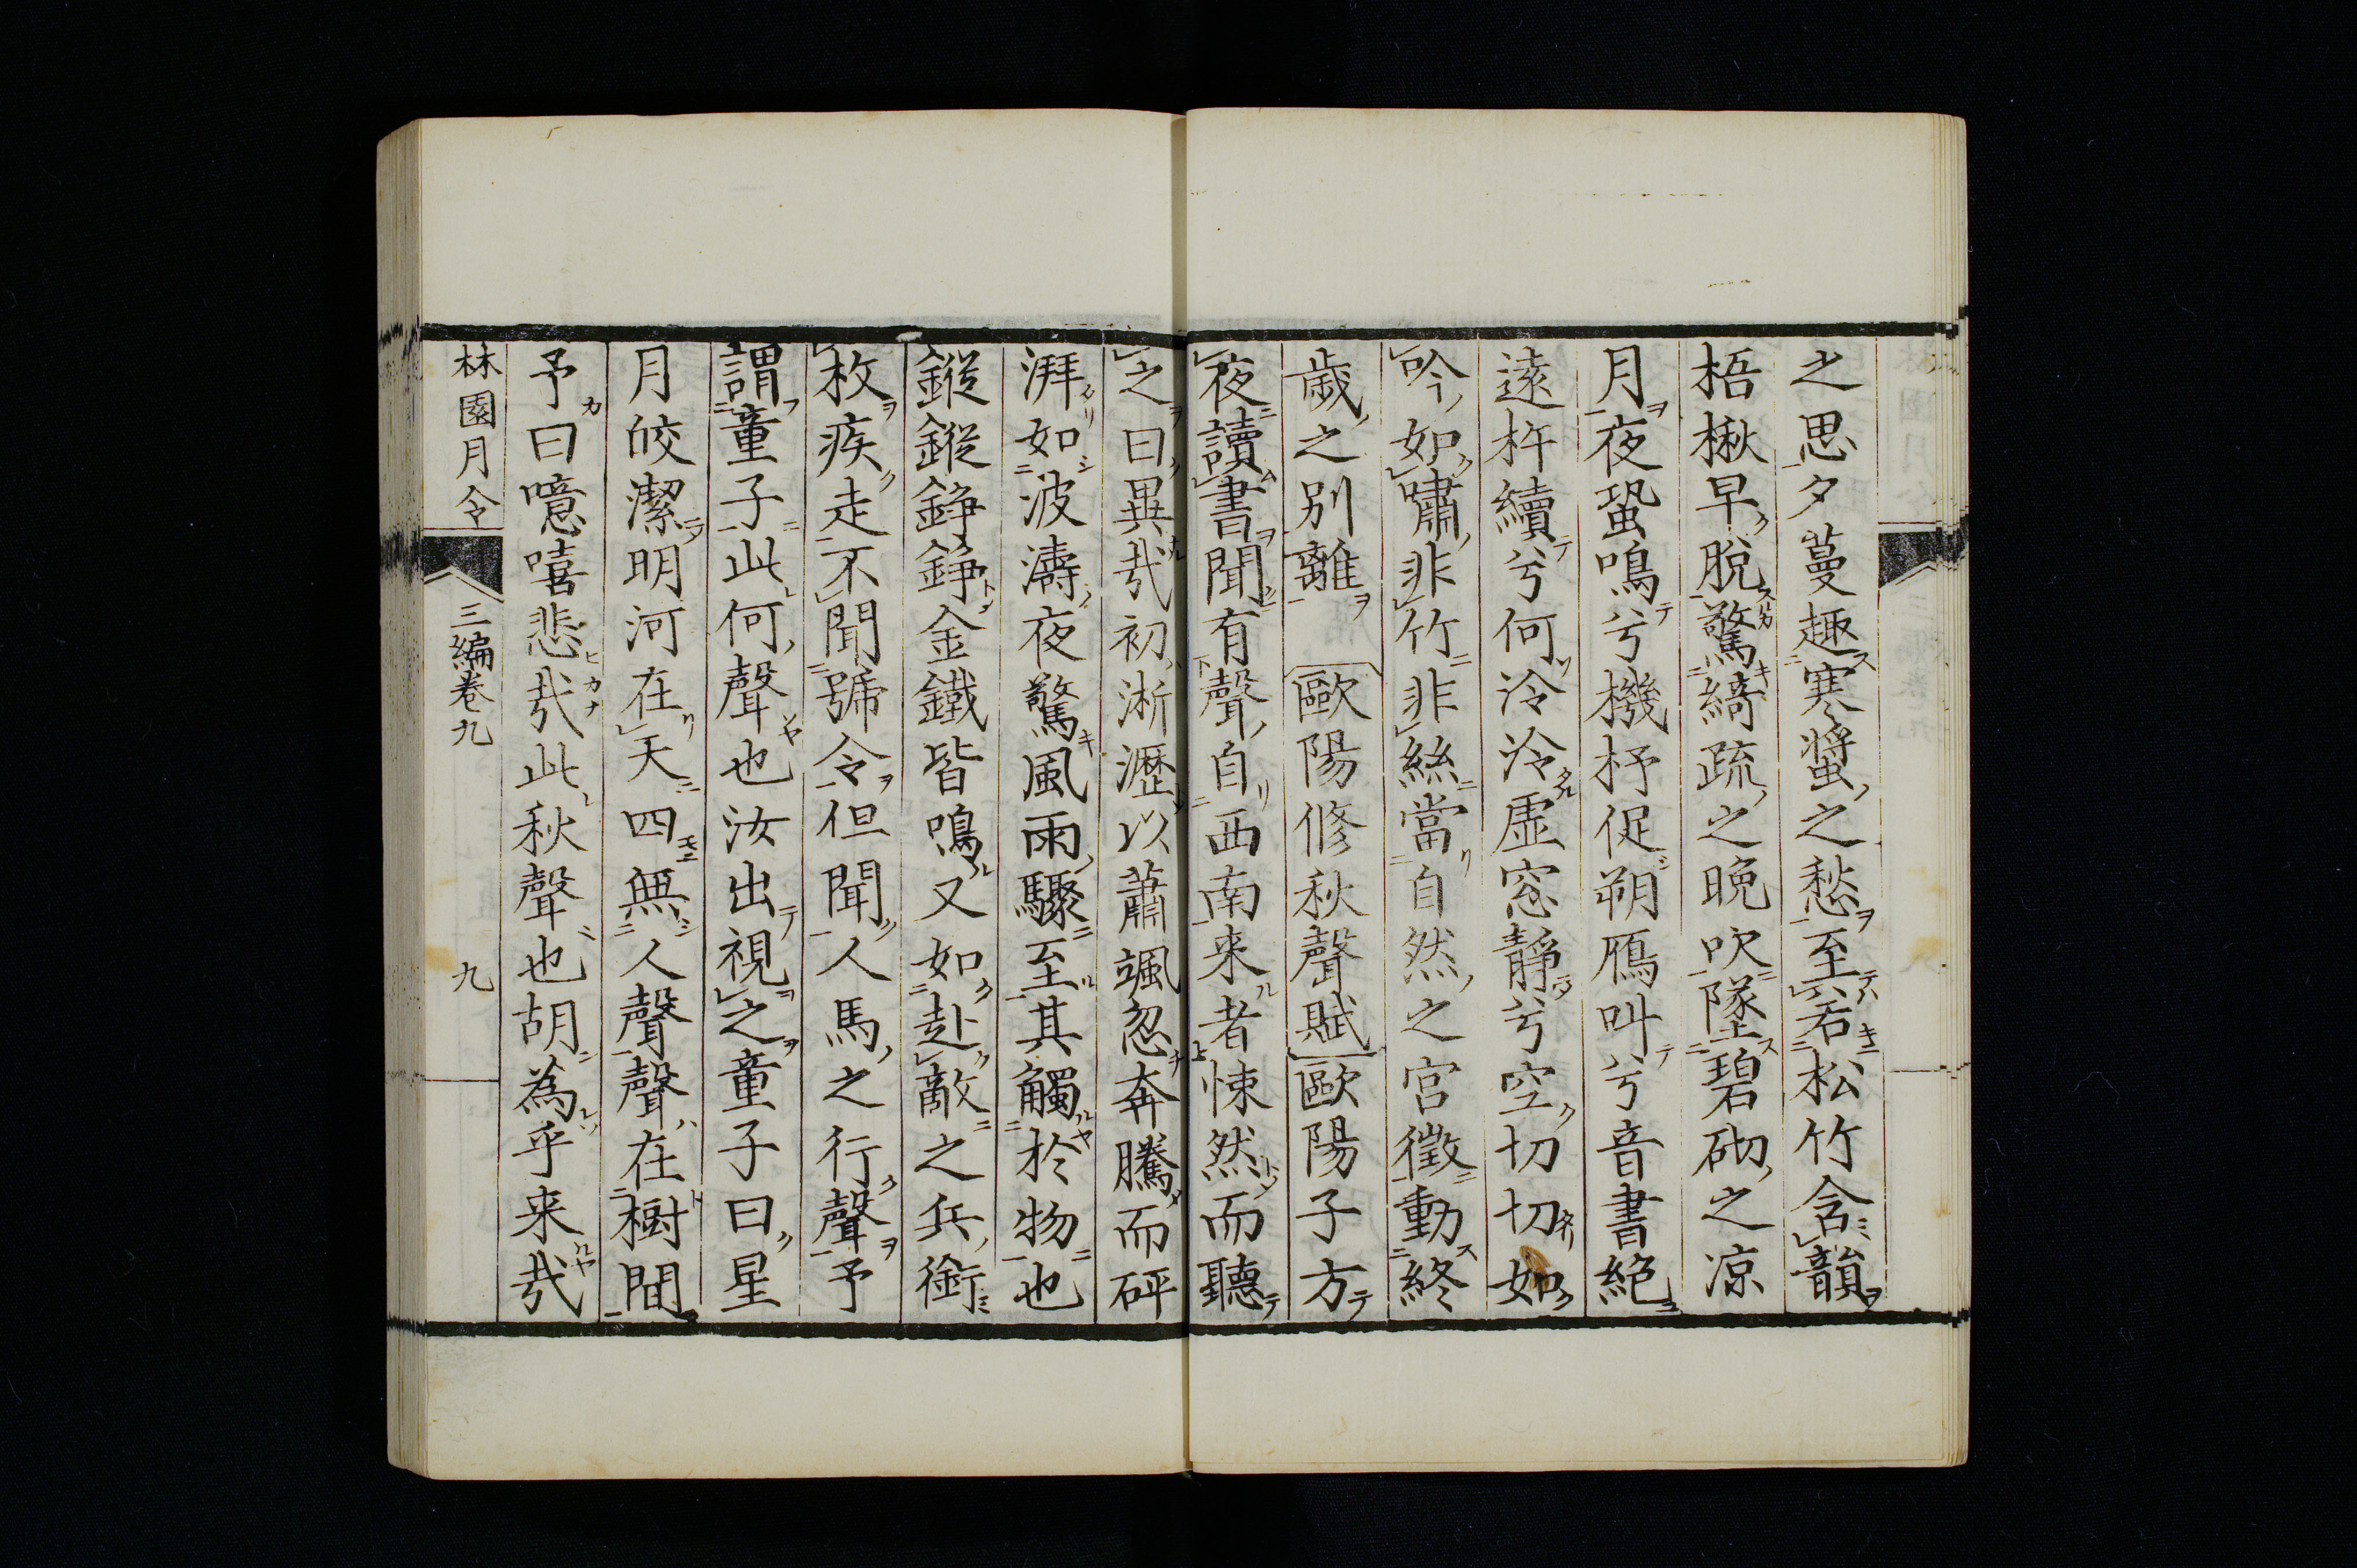 之思夕蔓趣寒螿之愁至若松竹含韻
梧楸早脫驚綺疏之晚吹墜碧砌之凉
月夜蛩鳴兮機杼促朔鴈叫兮音書絕
遠杵續兮何泠泠虛窓靜兮空切切如
吟如嘯非竹非絲當自然之宮徵動終
歲之別離 歐陽修秋聲賦 歐陽子方
夜讀書聞有聲自西南来者悚然而聽
之曰異㢤初淅瀝以蕭颯忽奔騰而砰
湃如波濤夜驚風雨驟至其觸於物也
鏦鏦錚錚金鐵皆鳴又如赴敵之兵銜
枚疾走不聞號令但聞人馬之行聲予
謂童子此何聲也汝出視之童子曰星
月皎潔明河在天四無人聲聲在樹間
予曰噫嘻悲㢤此秋聲也胡為乎来㢤
林園月令 三編卷九 九